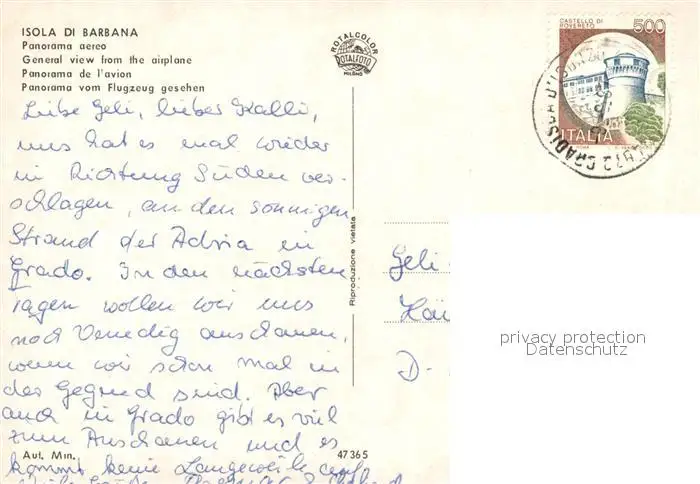 ISOLA DI BARBANA
Panorama aereo
General view from the airplane
Panorama de l'avion
Panorama vom Flugzeug gesehen
ROTALCOLOR
ROTALFOTO
MILANO
CASTELLO DI
ROVERETO
500
ITALIA
GRADIS
Liebe Geli, lieber Kalli,
uns hat es mal wieder
in Richtung Süden ver-
schlagen, an den sonnigen
Strand der Adria in
Grado. In den nächsten
Tagen wollen wir uns
noch Venedig anschauen,
wenn wir schon mal in
der Gegend sind. Aber
auch in Grado gibt es viel
zum Anschauen und es
kommt keine Langeweile auf.
Viele Grüße
Riproduzione vietata
Geli
D-
Aut. Min.
47365
privacy protection
Datenschutz